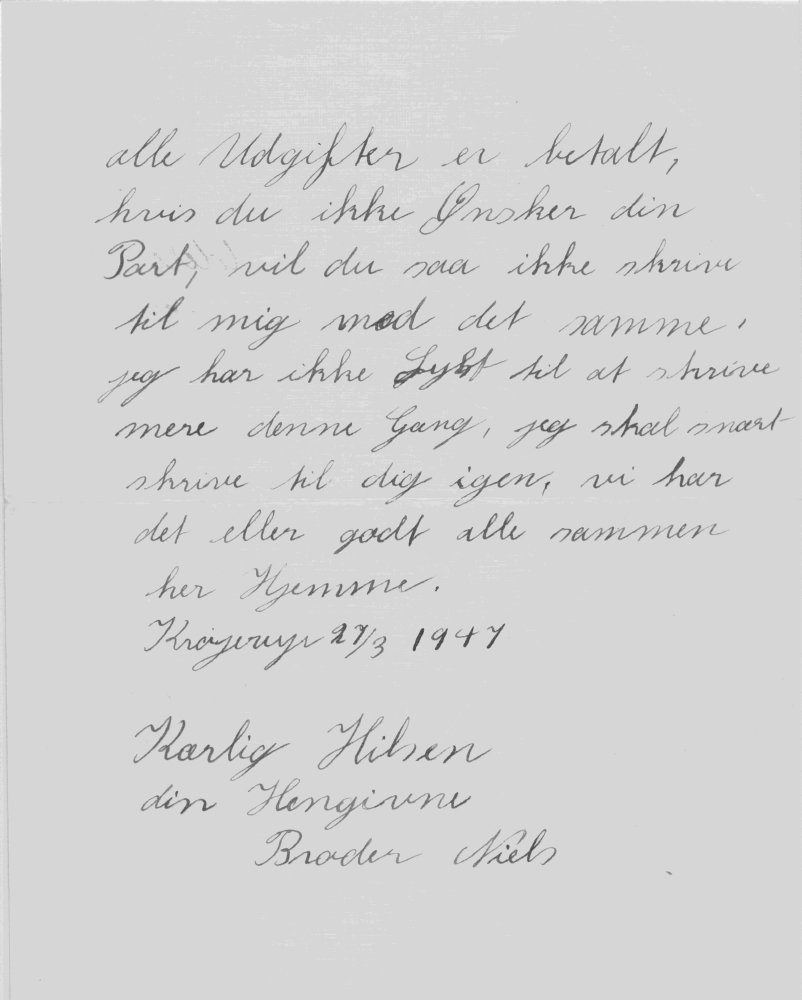 alle Udgifter er betalt,
hvis du ikke Ønsker din
Part, vil du saa ikke skrive
til mig med det samme,
jeg har ikke Lyst til at skrive
mere denne Gang, jeg skal snart
skrive til dig igen, vi har
det eller godt alle sammen
her Hjemme.
Krøyerup 27/3 1947
Kærlig Hilsen
din Hengivne
Broder Niels